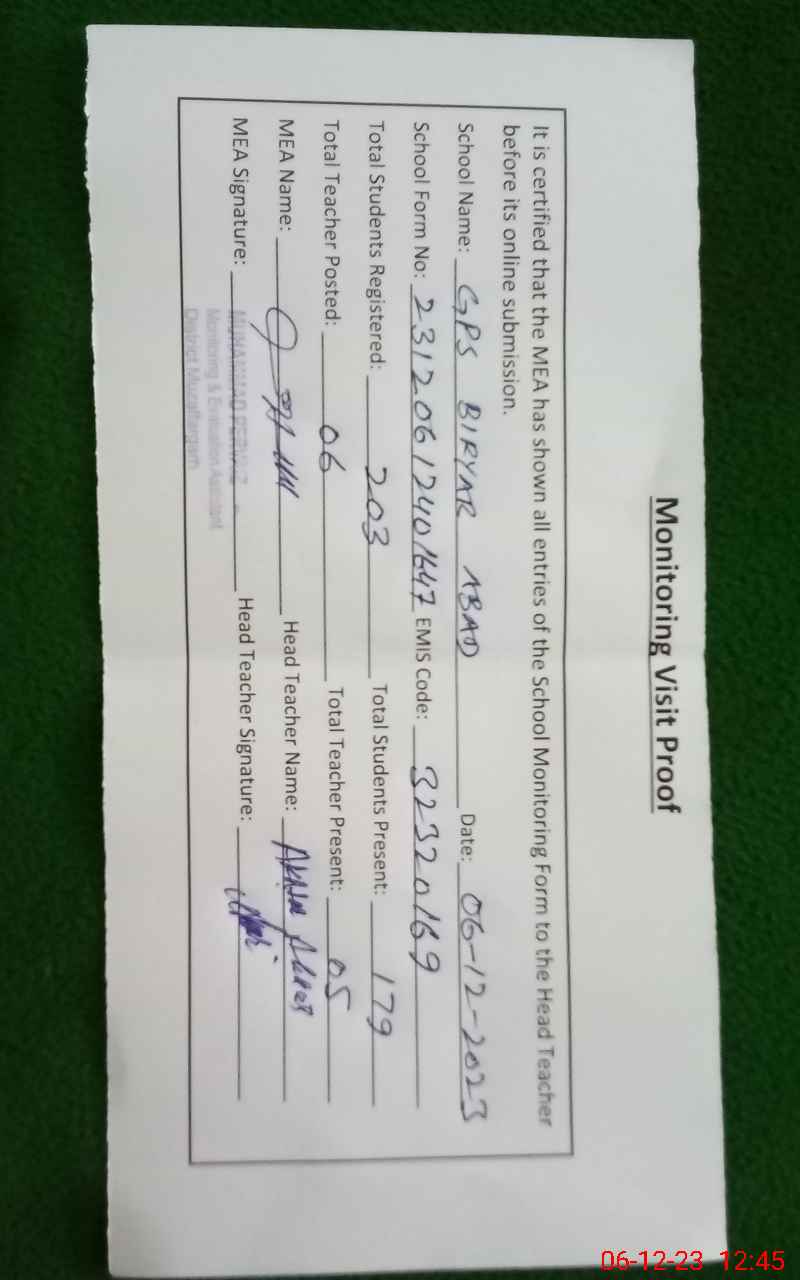 Monitoring Visit Proof
It is certified that the MEA has shown all entries of the School Monitoring Form to the Head Teacher
before its online submission.
School Name: GPS BIRYAR ABAD Date: 06-12-2023
School Form No: 23120612401647 EMIS Code: 32320169
Total Students Registered: 203 Total Students Present: 179
Total Teacher Posted: 06 Total Teacher Present: 05
MEA Name: Head Teacher Name:
MEA Signature: Head Teacher Signature:
MUHAMMAD PERVAIZ
Monitoring & Evaluation Assistant
District Muzaffargarh
06-12-23 12:45